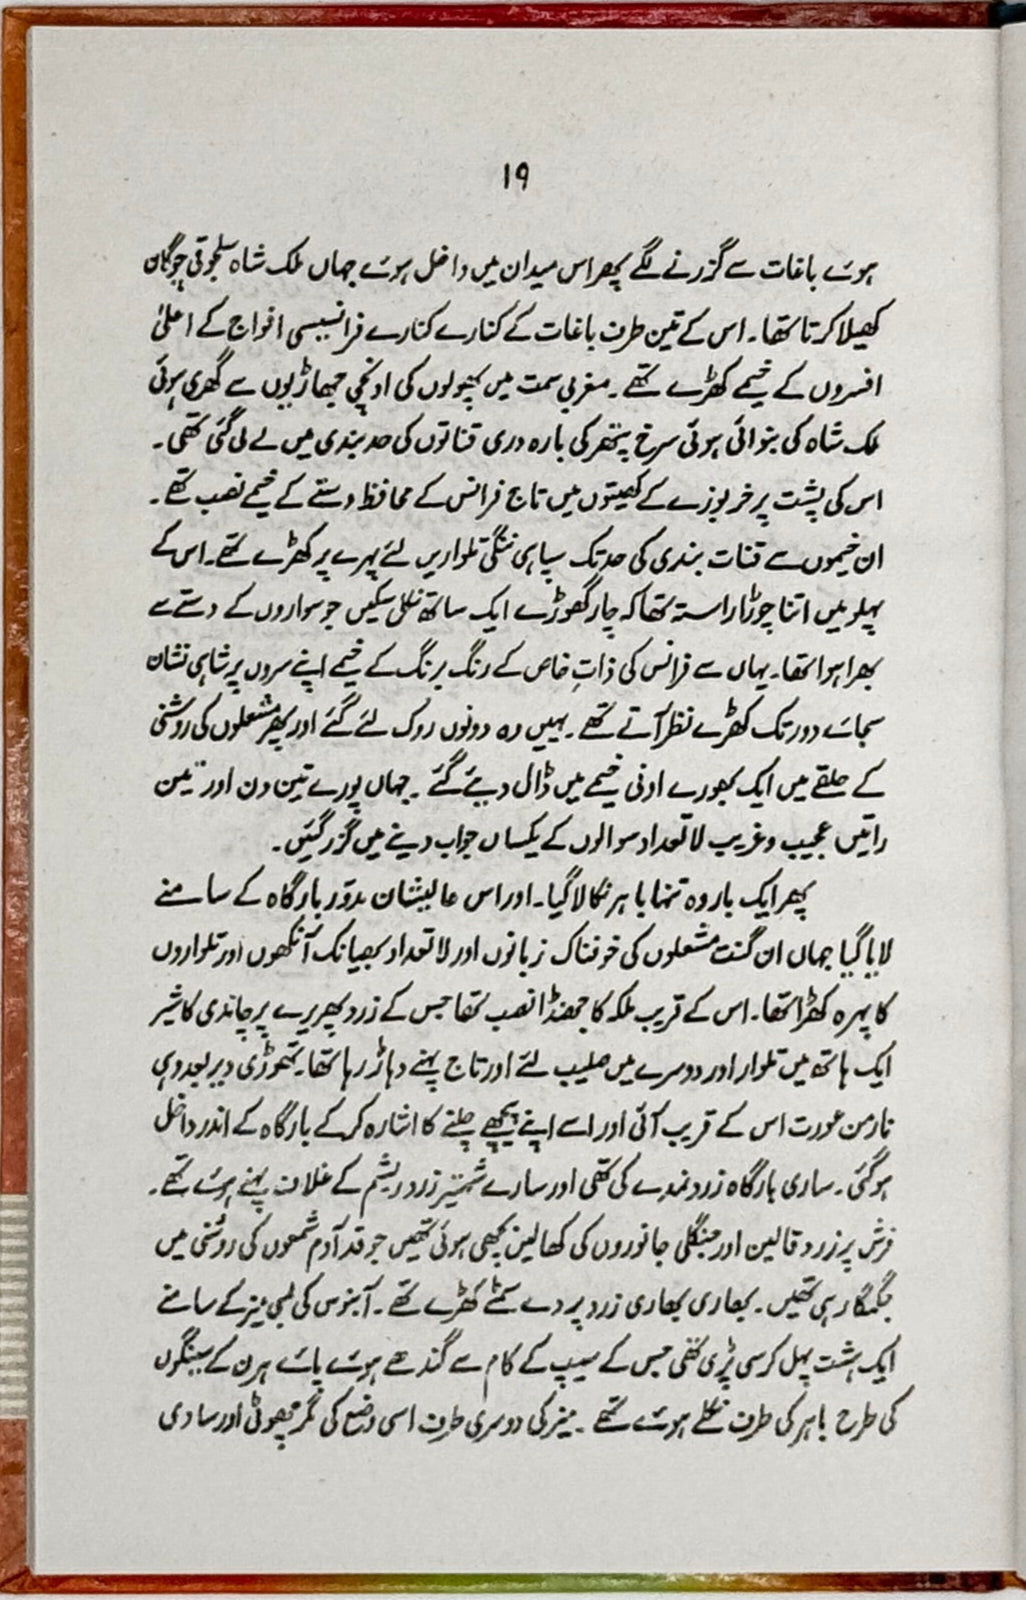 ۱۹
ہوئے باغات سے گزرنے لگے پھر اس میدان میں داخل ہوئے جہاں ملک شاہ سلجوقی چوگان
کھیلا کرتا تھا۔ اس کے تین طرف باغات کے کنارے کنارے فرانسیسی افواج کے اعلیٰ
افسروں کے خیمے کھڑے تھے۔ مغربی سمت میں پھولوں کی اونچی جھاڑیوں سے گھری ہوئی
ملک شاہ کی بنوائی ہوئی سرخ پتھر کی بارہ دری قناتوں کی حد بندی میں لے لی گئی تھی۔
اس کی پشت پر خربوزے کے کھیتوں میں تاج فرانس کے محافظ دستے کے خیمے نصب تھے۔
ان خیموں سے قنات بندی کی حد تک سپاہی ننگی تلواریں لئے پہرے پر کھڑے تھے۔ اس کے
پہلو میں اتنا چوڑا راستہ تھا کہ چار گھوڑے ایک ساتھ نکل سکیں جو سواروں کے دستے سے
بھرا ہوا تھا۔ یہاں سے فرانس کی ذاتِ خاص کے رنگ برنگ کے خیمے اپنے سروں پر شاہی نشان
سجائے دور تک کھڑے نظر آتے تھے۔ یہیں وہ دونوں روک لئے گئے اور پھر مشعلوں کی روشنی
کے حلقے میں ایک بھورے اونی خیمے میں ڈال دیئے گئے۔ جہاں پورے تین دن اور تین
راتیں عجیب و غریب لاتعداد سوالوں کے یکساں جواب دینے میں گزر گئیں۔
پھر ایک بار وہ تنہا باہر نکالا گیا۔ اور اس عالیشان مدوّر بارگاہ کے سامنے
لایا گیا جہاں ان گنت مشعلوں کی خوفناک زبانوں اور لاتعداد بھیانک آنکھوں اور تلواروں
کا پہرہ کھڑا تھا۔ اس کے قریب ملکہ کا جھنڈا نصب تھا جس کے زرد پھریرے پر چاندی کا شیر
ایک ہاتھ میں تلوار اور دوسرے میں صلیب لئے اور تاج پہنے دہاڑ رہا تھا۔ تھوڑی دیر بعد وہی
نارمن عورت اس کے قریب آئی اور اسے اپنے پیچھے چلنے کا اشارہ کر کے بارگاہ کے اندر داخل
ہو گئی۔ ساری بارگاہ زرد نمدے کی تھی اور سارے شہتیر زرد ریشم کے غلاف پہنے ہوئے تھے۔
فرش پر زرد قالین اور جنگلی جانوروں کی کھالیں بچھی ہوئی تھیں جو قد آدم شمعوں کی روشنی میں
جگمگا رہی تھیں۔ بھاری بھاری زرد پردے سمٹے کھڑے تھے۔ آبنوس کی لمبی میز کے سامنے
ایک ہشت پہل کرسی پڑی تھی جس کے سیپ کے کام سے گندھے ہوئے پائے ہرن کے سینگوں
کی طرح باہر کی طرف نکلے ہوئے تھے۔ میز کی دوسری طرف اسی وضع کی مگر چھوٹی اور سادی